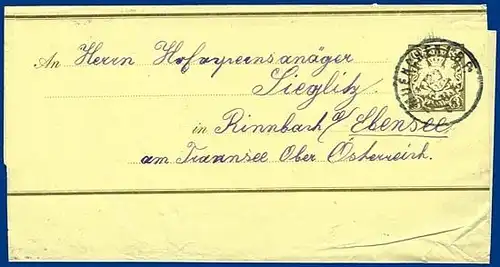 An Herrn Hofopernsänger
Sieglitz
in Rinnbach a/ Ebensee
am Traunsee Ober Österreich.
3